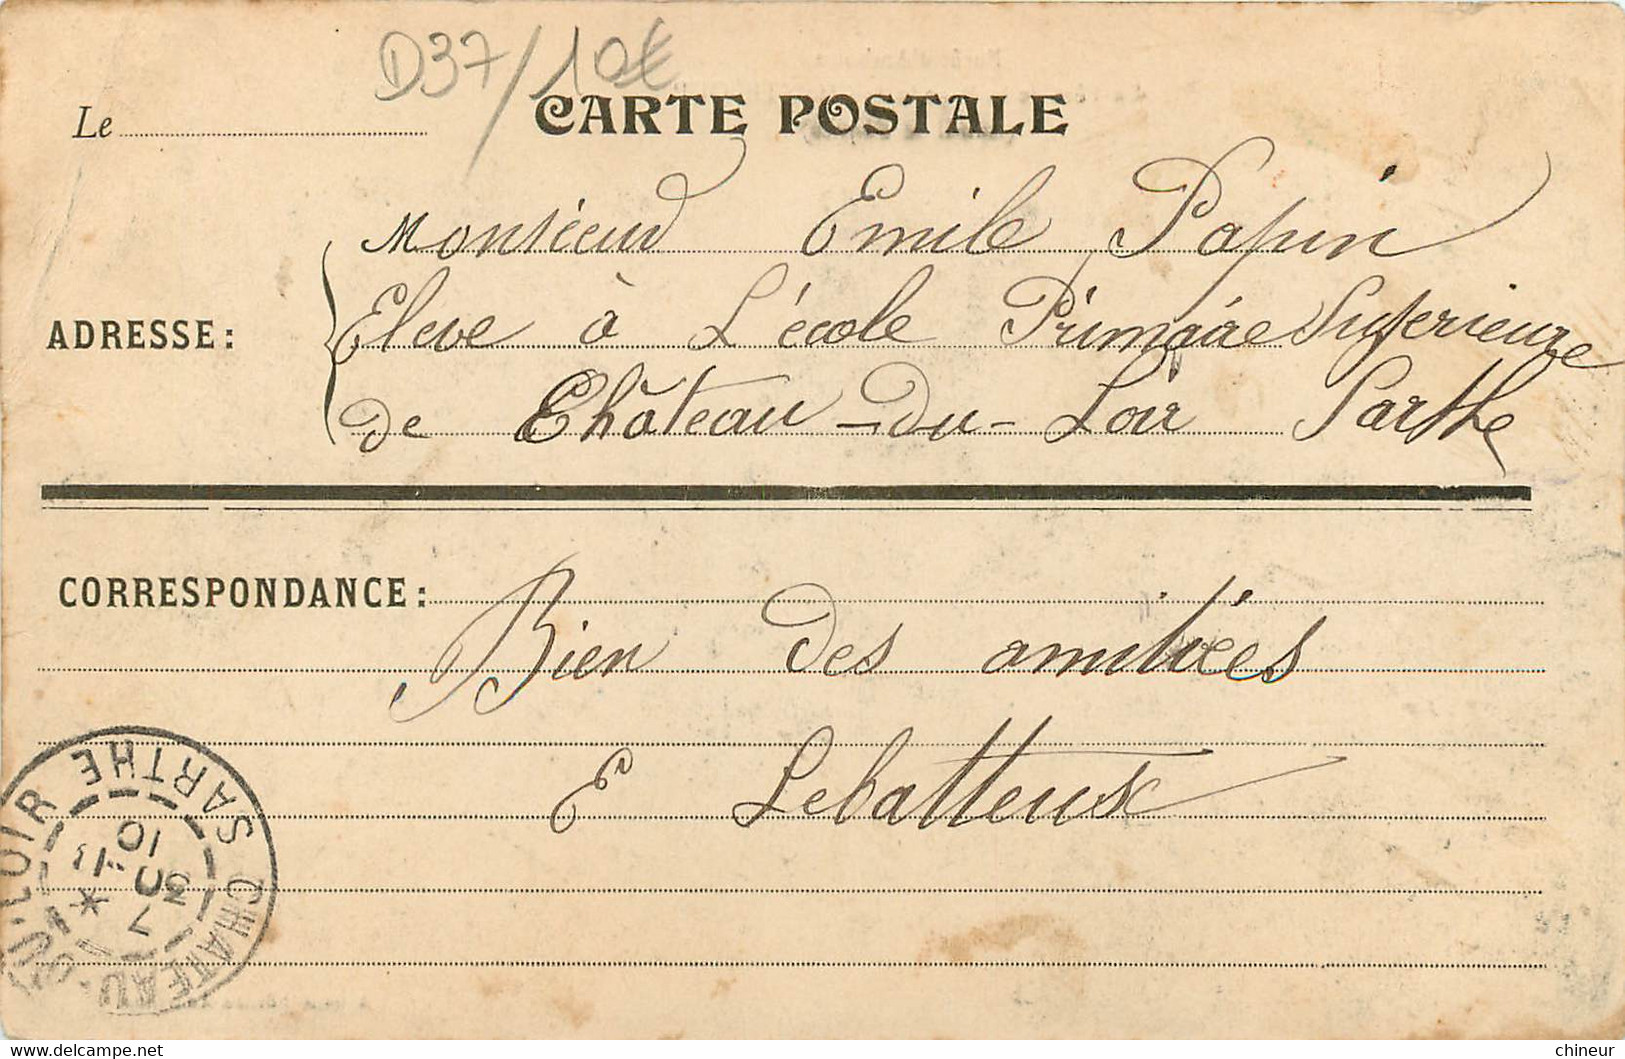 D37/10€
CARTE POSTALE
Le
Monsieur Emile Papin
ADRESSE :
Eleve à L'école Primaire Superieure
de Château-du-Loir Sarthe
CORRESPONDANCE :
Bien des amitiées
E Lebatteux
CHATEAU-DU-LOIR SARTHE
7
30
10
chineur